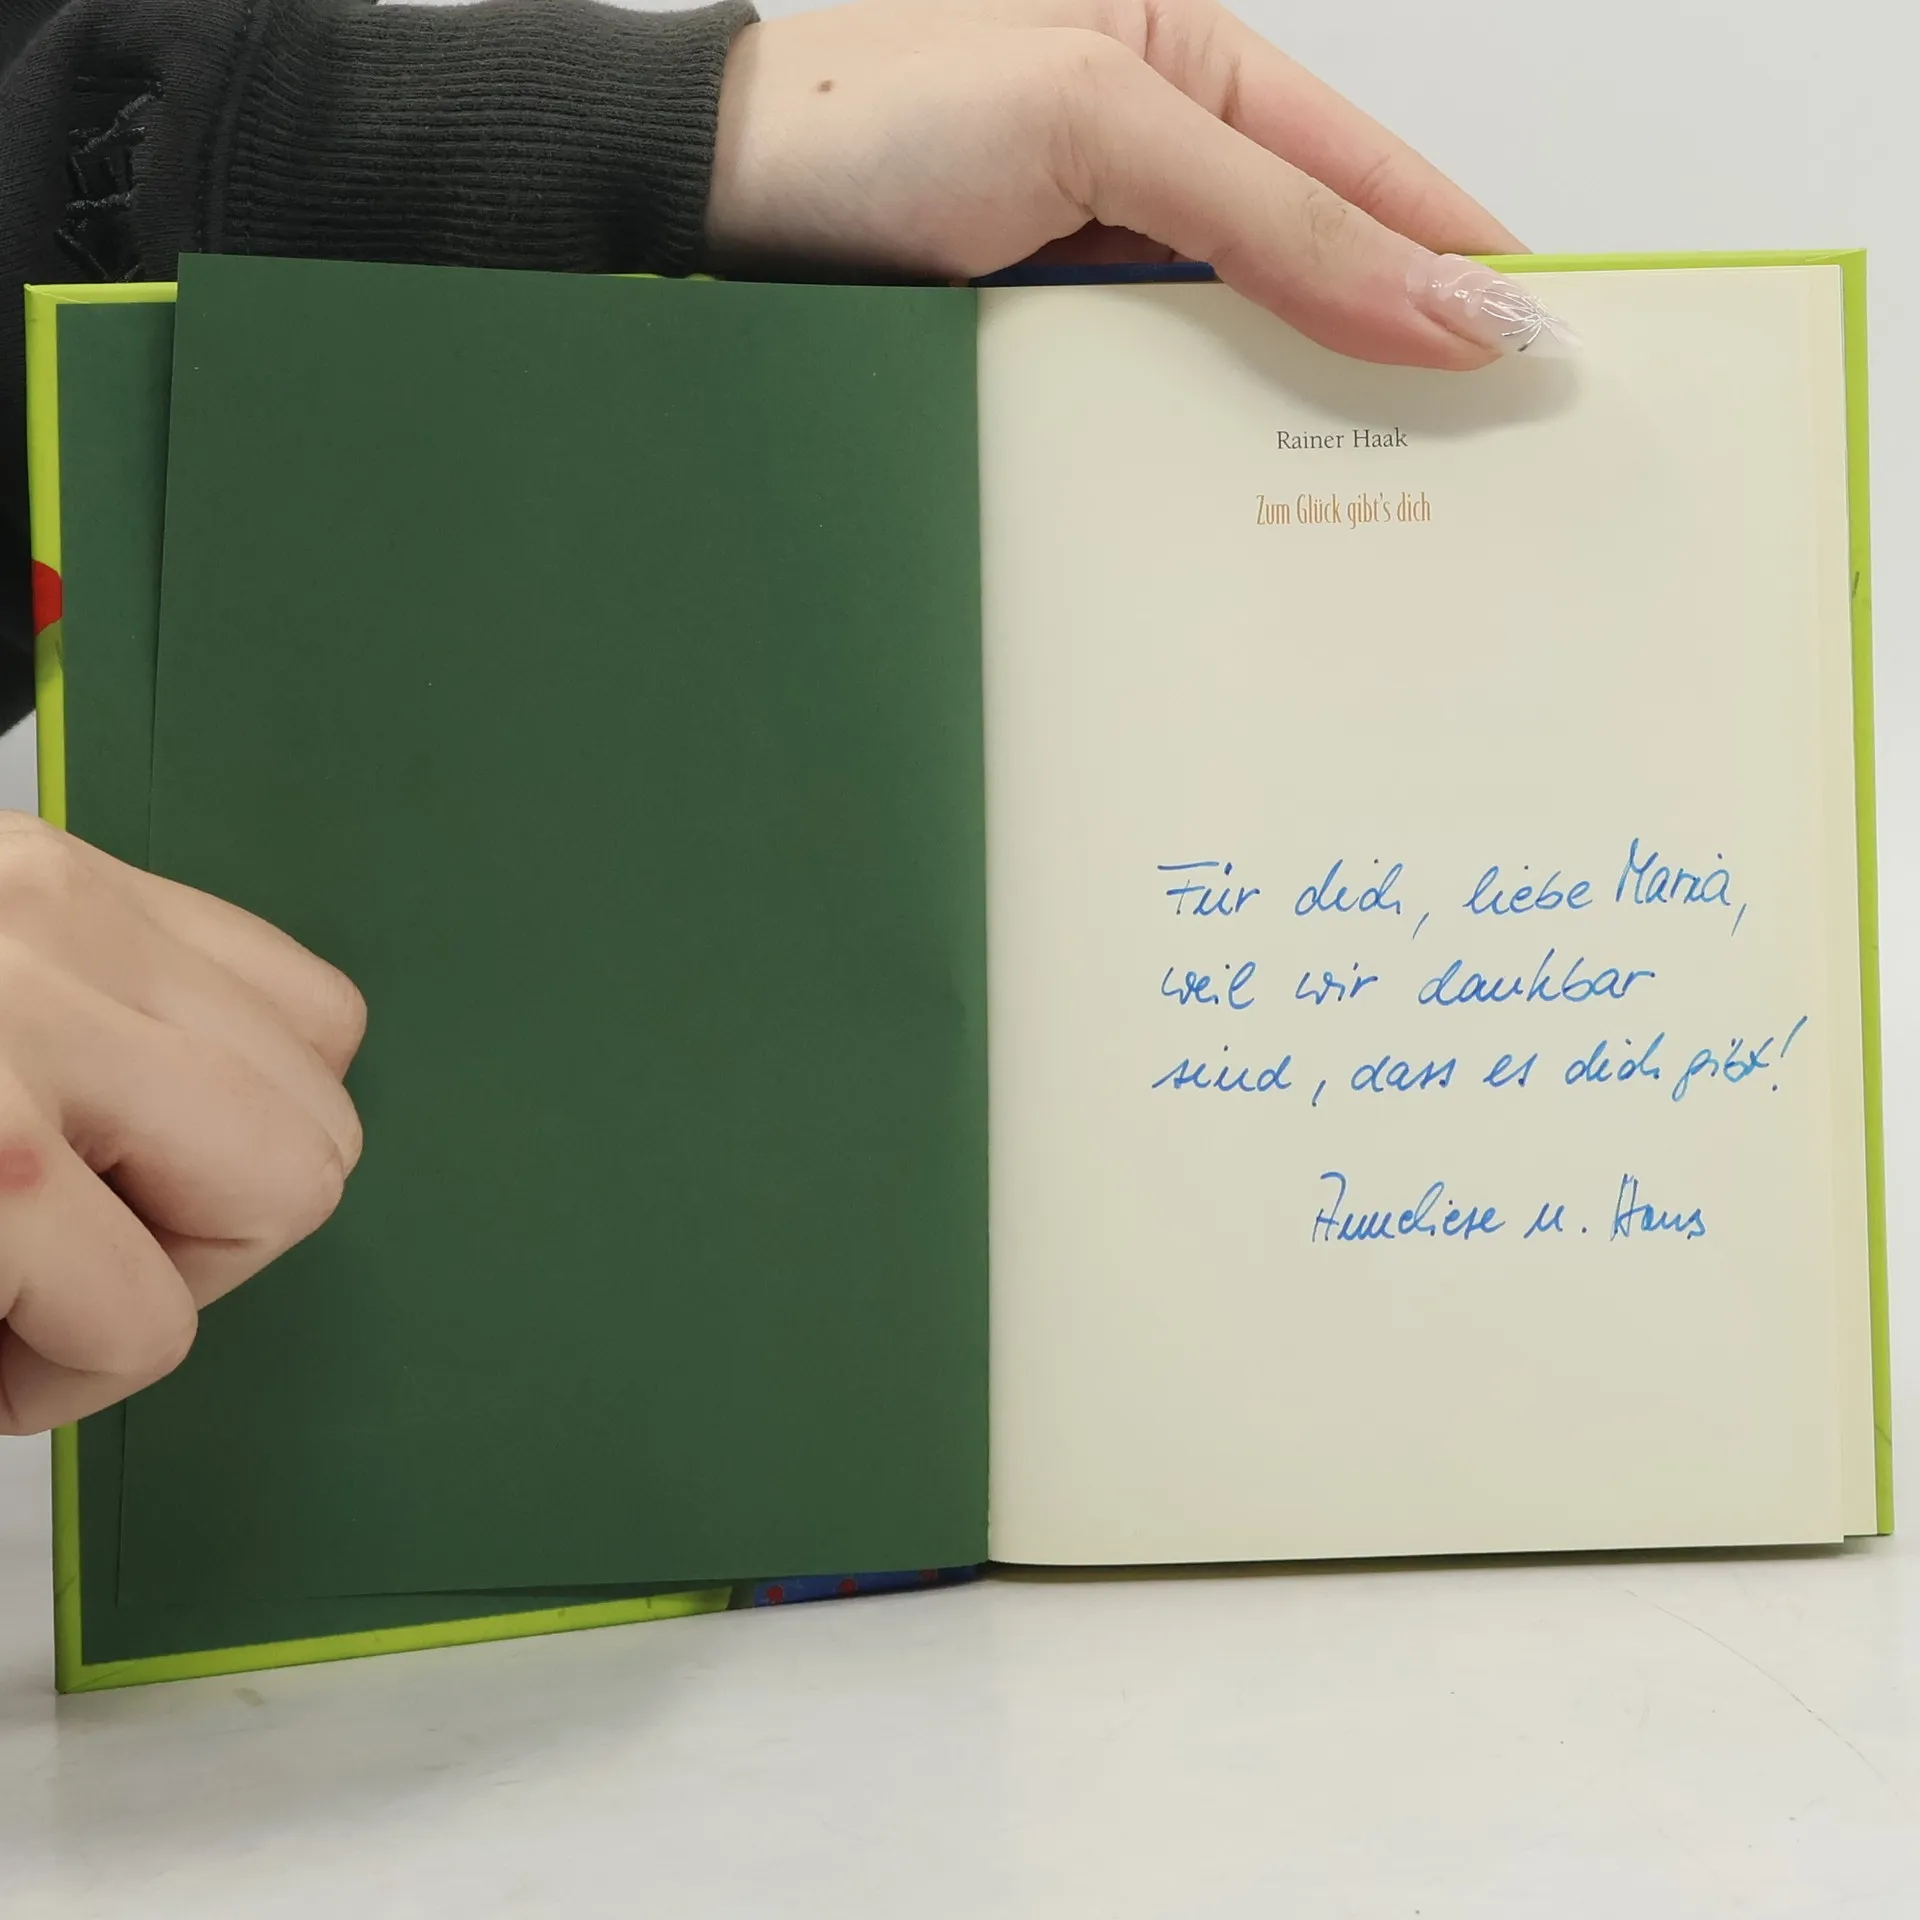 Rainer Haak
Zum Glück gibt's dich
Für dich, liebe Maria,
weil wir dankbar
sind, dass es dich gibt!
Anneliese u. Hans